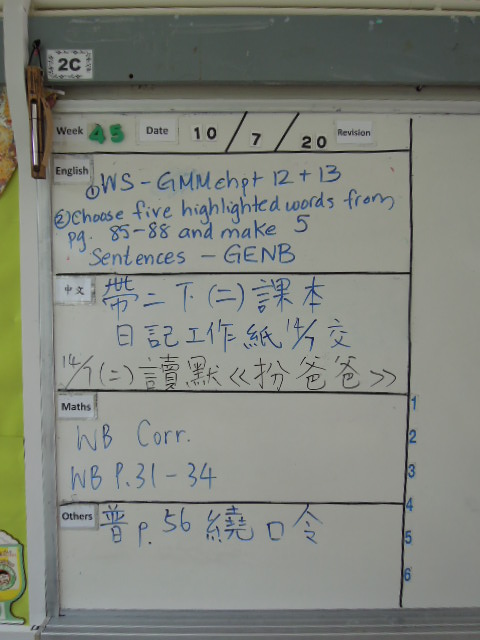 2C
Week 45 Date 10 / 7 / 20 Revision
English
① WS - GMM chpt 12 + 13
② Choose five highlighted words from
pg. 85-88 and make 5
Sentences - GENB
中文
帶二下(二)課本
日記工作紙 14/7 交
14/7(二)讀默《扮爸爸》
Maths
WB Corr.
WB P.31-34
Others
普 p.56 繞口令
1
2
3
4
5
6